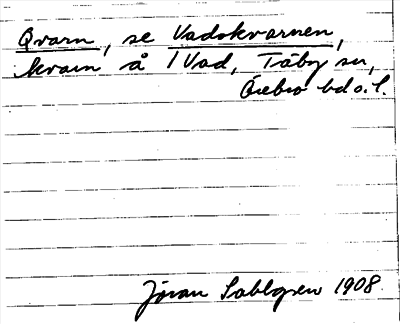 Qvarn, se Vadskvarnen,
kvarn å 1 Vad, Täby sn,
Örebro hd o. l.
Jöran Sahlgren 1908.